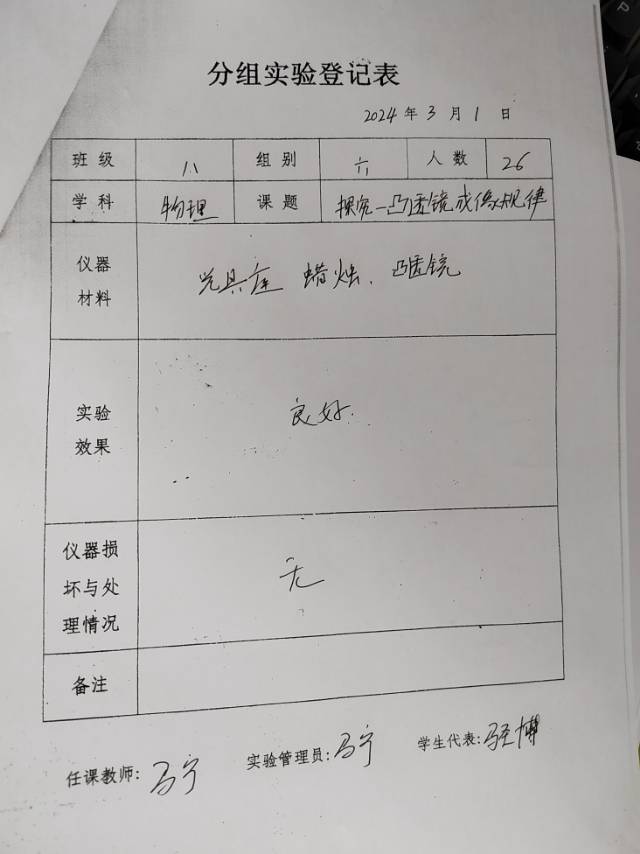 分组实验登记表
2024 年 3 月 1 日
班级 八 组别 六 人数 26
学科 物理 课题 探究一凸透镜成像规律
仪器材料 光具座 蜡烛、凸透镜
实验效果 良好.
仪器损坏与处理情况 无
备注
任课教师: 马宁 实验管理员: 马宁 学生代表:
P